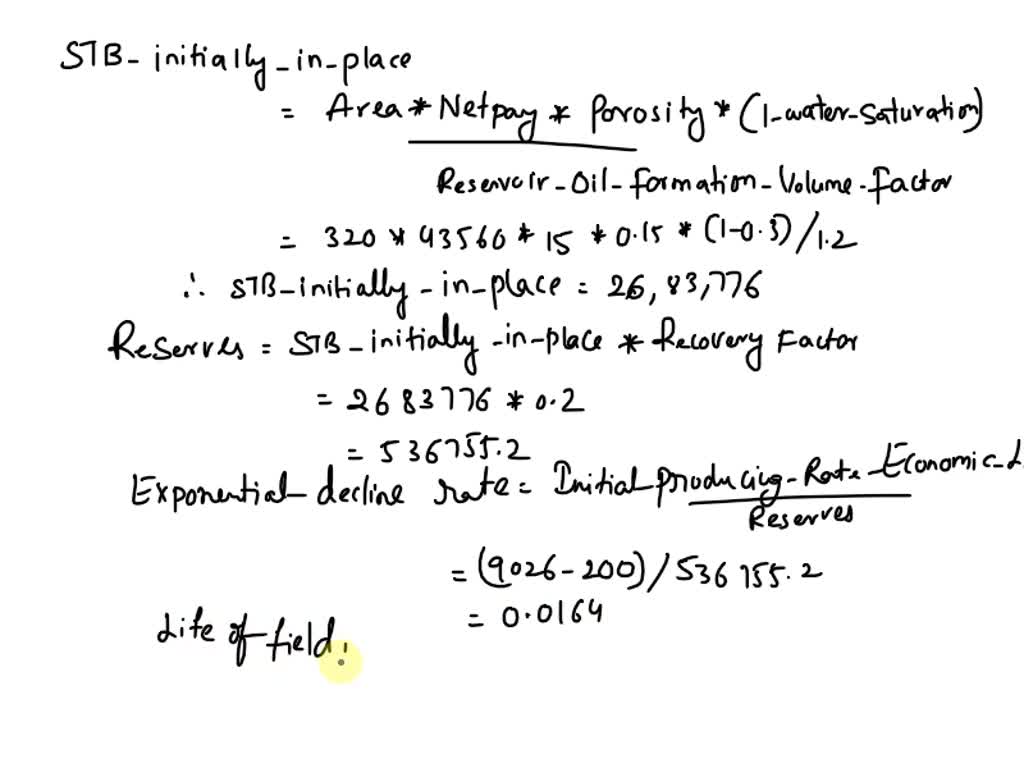 STB-initially-in-place
= Area * Netpay * Porosity * (1-water-saturation)
Reservoir-Oil-formation-Volume-factor
= 320 * 43560 * 15 * 0.15 * (1-0.3)/1.2
∴ STB-initially-in-place = 26,83,776
Reserves = STB-initially-in-place * Recovery Factor
= 2683776 * 0.2
= 536755.2
Exponential-decline rate = Initial-producing-Rate-Economic-L
Reserves
= (9026-200)/536755.2
= 0.0164
Life of field